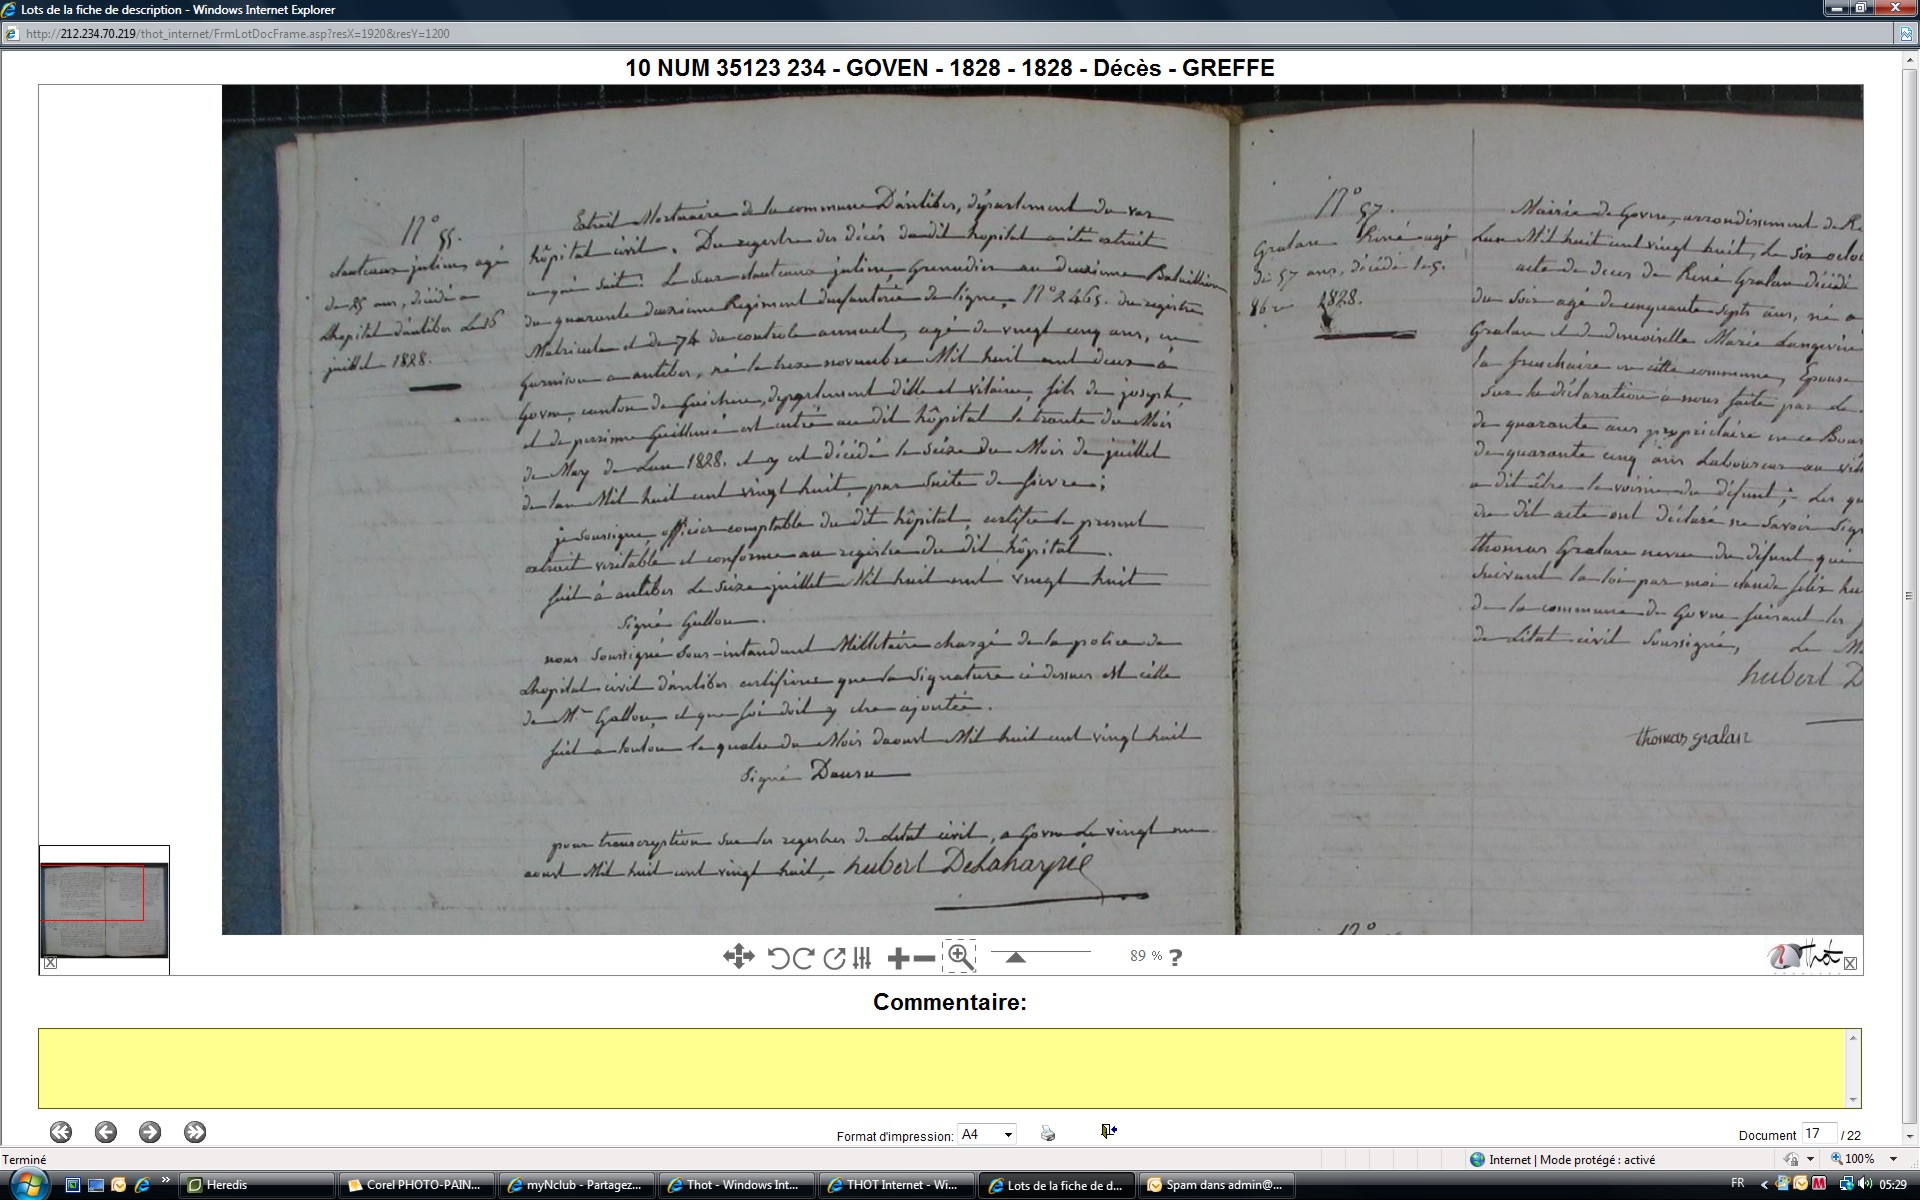 Lots de la fiche de description - Windows Internet Explorer
http://212.234.70.219/thot_internet/FrmLotDocFrame.asp?resX=1920&resY=1200
10 NUM 35123 234 - GOVEN - 1828 - 1828 - Décès - GREFFE
N° 55.
dautaux julien, agé
de 25 ans, décédé a
Lhopital d'antibes Le 16
juillet 1828.
Extrait Mortuaire de la commune D'antibes, département du var
hôpital civil. Du registre des décés du dit hopital a été extrait
ce qui suit: Le sieur dautaux julien, Grenadier au deuxième Bataillion
du quarante deuxième Regiment d'infanterie de ligne, N° 2465. du registre
Matricule et de 74 du controle annuel, agé de vingt cinq ans, en
Garnison a antibes, né le treize novembre Mil huit cent deux à
Goven, canton de Guichen, département d'ille et vilaine, fils de joseph,
et de perrinne est entré au dit hôpital le trente du Mois
de May de Lan 1828. et y est décédé le seize du Mois de juillet
de lan Mil huit cent vingt huit, par suite de fievre;
je soussigné officier comptable du dit hôpital, certifie le present
extrait veritable et conforme au registre du dit hôpital.
fait à antibes Le seize juillet Mil huit cent vingt huit
Signé Gallou.
nous soussigné sous-intendant Millitaire chargé de la police de
Lhopital civil d'antibes certifions que la Signature ci dessus est celle
de Mr Gallou, et que foi doit y etre ajoutée.
fait a toulon le quatre du Mois daout Mil huit cent vingt huit
Signé
pour transcryption sur les registres de Létat civil, a Goven Le vingt
aout Mil huit cent vingt huit. hubert Delaharpie
N° 57.
Gralan René agé
de 57 ans, décédé le 5.
8bre 1828.
Mairie de Goven, arrondissement de Re
Lan Mil huit cent vingt huit, Le six octo
acte de deces de René Gralan décédé
du soir agé de cinquante sept ans, né a
Gralan et de demoiselle Marie Langevin
la en cette commune, Epoux
Sur la déclaration a nous faite par
de quarante ans propriétaire en ce Bour
de quarante cinq ans Laboureur au vill
a dit être le voisin du défunt; Les qu
du dit acte ont déclaré ne Savoir Sign
thomas Gralan neveu du défunt qui
suivant la loi par moi claude felix hu
de la commune de Goven faisant les f
de Létat civil soussigné, Le Ma
hubert D
thomas gralan
N°
89 % ?
Thot
Commentaire:
Format d'impression: A4
Document 17 / 22
Terminé
Internet | Mode protégé : activé
100%
Heredis
Corel PHOTO-PAIN...
myNclub - Partagez...
Thot - Windows Int...
THOT Internet - Wi...
Lots de la fiche de d...
Spam dans admin@...
FR
05:29